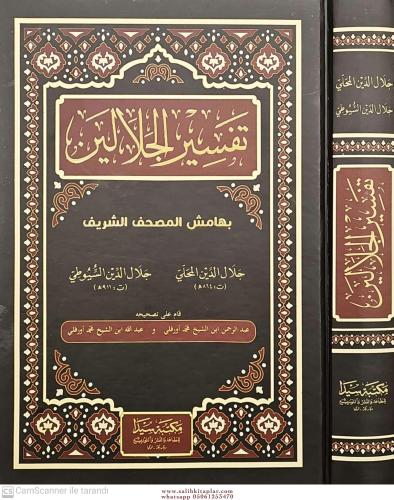 تفسير الجلالين
بهامش المصحف الشريف
جلال الدين المحلي
(ت: ٨٦٤ هـ)
جلال الدين السيوطي
(ت: ٩١١ هـ)
قام على تصحيحه
عبد الرحمن ابن الشيخ محمد أورفلي و عبد الله ابن الشيخ محمد أورفلي
مكتبة سيدا
للطباعة والنشر والتوزيع
جلال الدين المحلي
جلال الدين السيوطي
تفسير الجلالين
مكتبة سيدا
للطباعة والنشر والتوزيع
CS CamScanner ile tarandı
www.salihkitaplar.com
whatsapp 05061255470